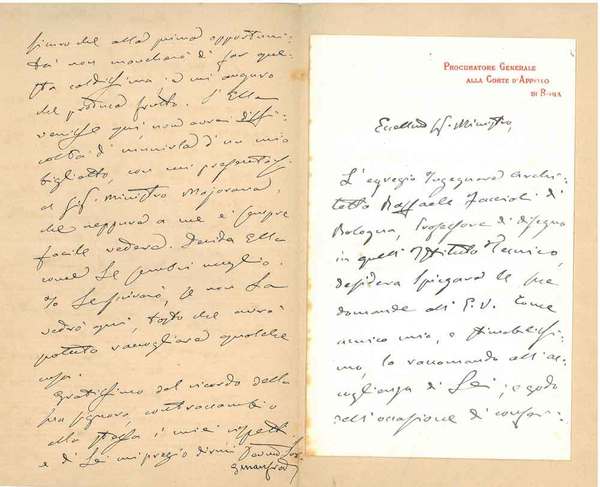 simo che alla prima opportuni-
tà non mancherò di far que-
sta caldissima: e mi auguro
del pratico frutto. S'Ella
venisse qui non avrei diffi-
coltà di munirla d'un mio
biglietto, con cui presentarsi
al Sig. Ministro Majorana,
che neppure a me è sempre
facile vedere. Decida Ella
come Le sembri meglio.
Io Le scriverò, se non La
vedrò qui, tosto che avrò
potuto raccogliere qualche
cosa.
Gratissimo del ricordo della
sua signora, contraccambio
alla stessa i miei rispetti
e di Lei mi pregio dirmi
PROCURATORE GENERALE
ALLA CORTE D'APPELLO
DI ROMA
Eccellmo Sig. Ministro,
L'egregio Ingegnere Archi-
tetto Raffaele Faccioli di
Bologna, Professore di disegno
in quell'Istituto Tecnico,
desidera spiegare le sue
domande all'E.V. Come
amico mio, e stimabilissi-
mo, lo raccomando all'ac-
coglienza di Lei; e godo
dell'occasione di confer-